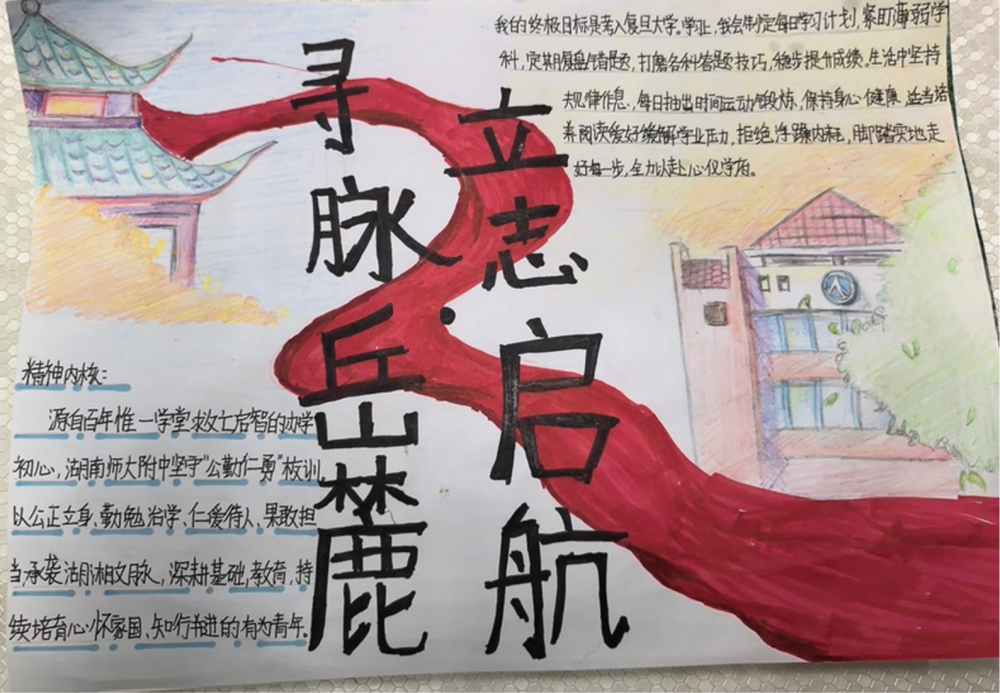 寻脉岳麓
立志启航
我的终极目标是考入复旦大学。学习上,我会制定每日学习计划,紧盯薄弱学
科,定期复盘错题,打磨各科答题技巧,稳步提升成绩,生活中坚持
规律作息,每日抽出时间运动锻炼,保持身心健康,适当培
养阅读爱好缓解学业压力,拒绝浮躁内耗,脚踏实地走
好每一步,全力以赴心仪学府。
精神内核:
源自百年惟一学堂救亡启智的办学
初心,湖南师大附中坚守“公勤仁勇”校训
以公正立身、勤勉治学、仁爱待人、果敢担
当承袭湖湘文脉,深耕基础教育,持
续培育心怀家国、知行并进的有为青年。